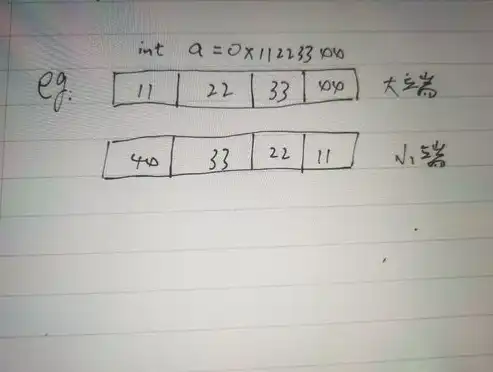 int a = 0x11223344
eg: 11 22 33 44 大端
44 33 22 11 小端